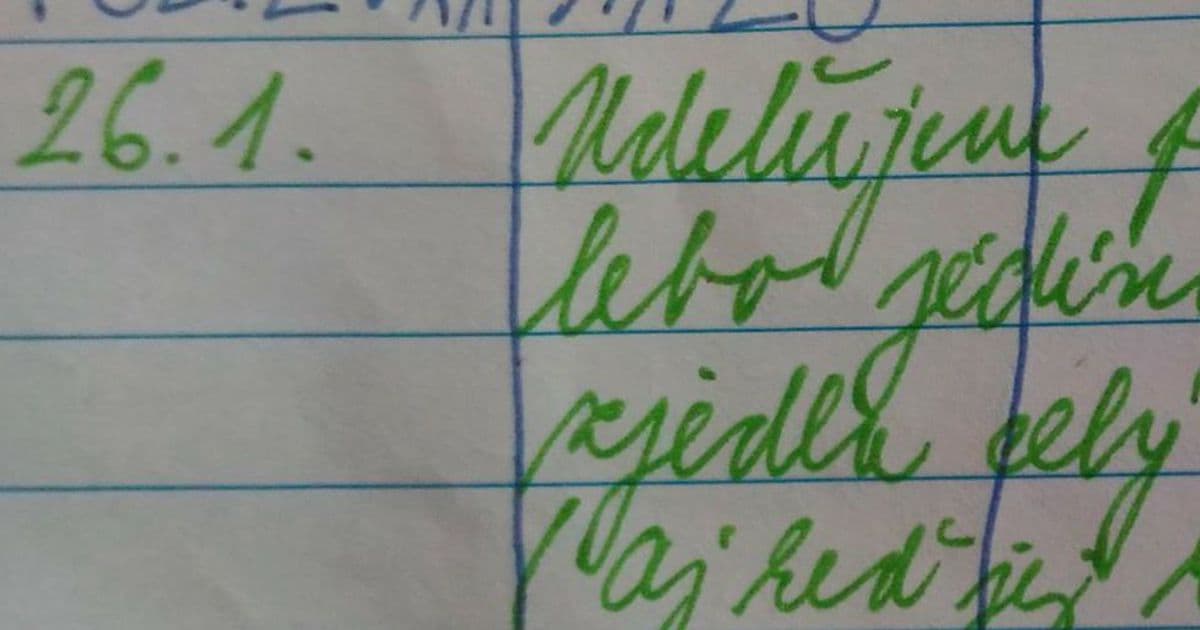 26.1. Udeľujem
lebo jedin
zjedla celý
(aj keď jej